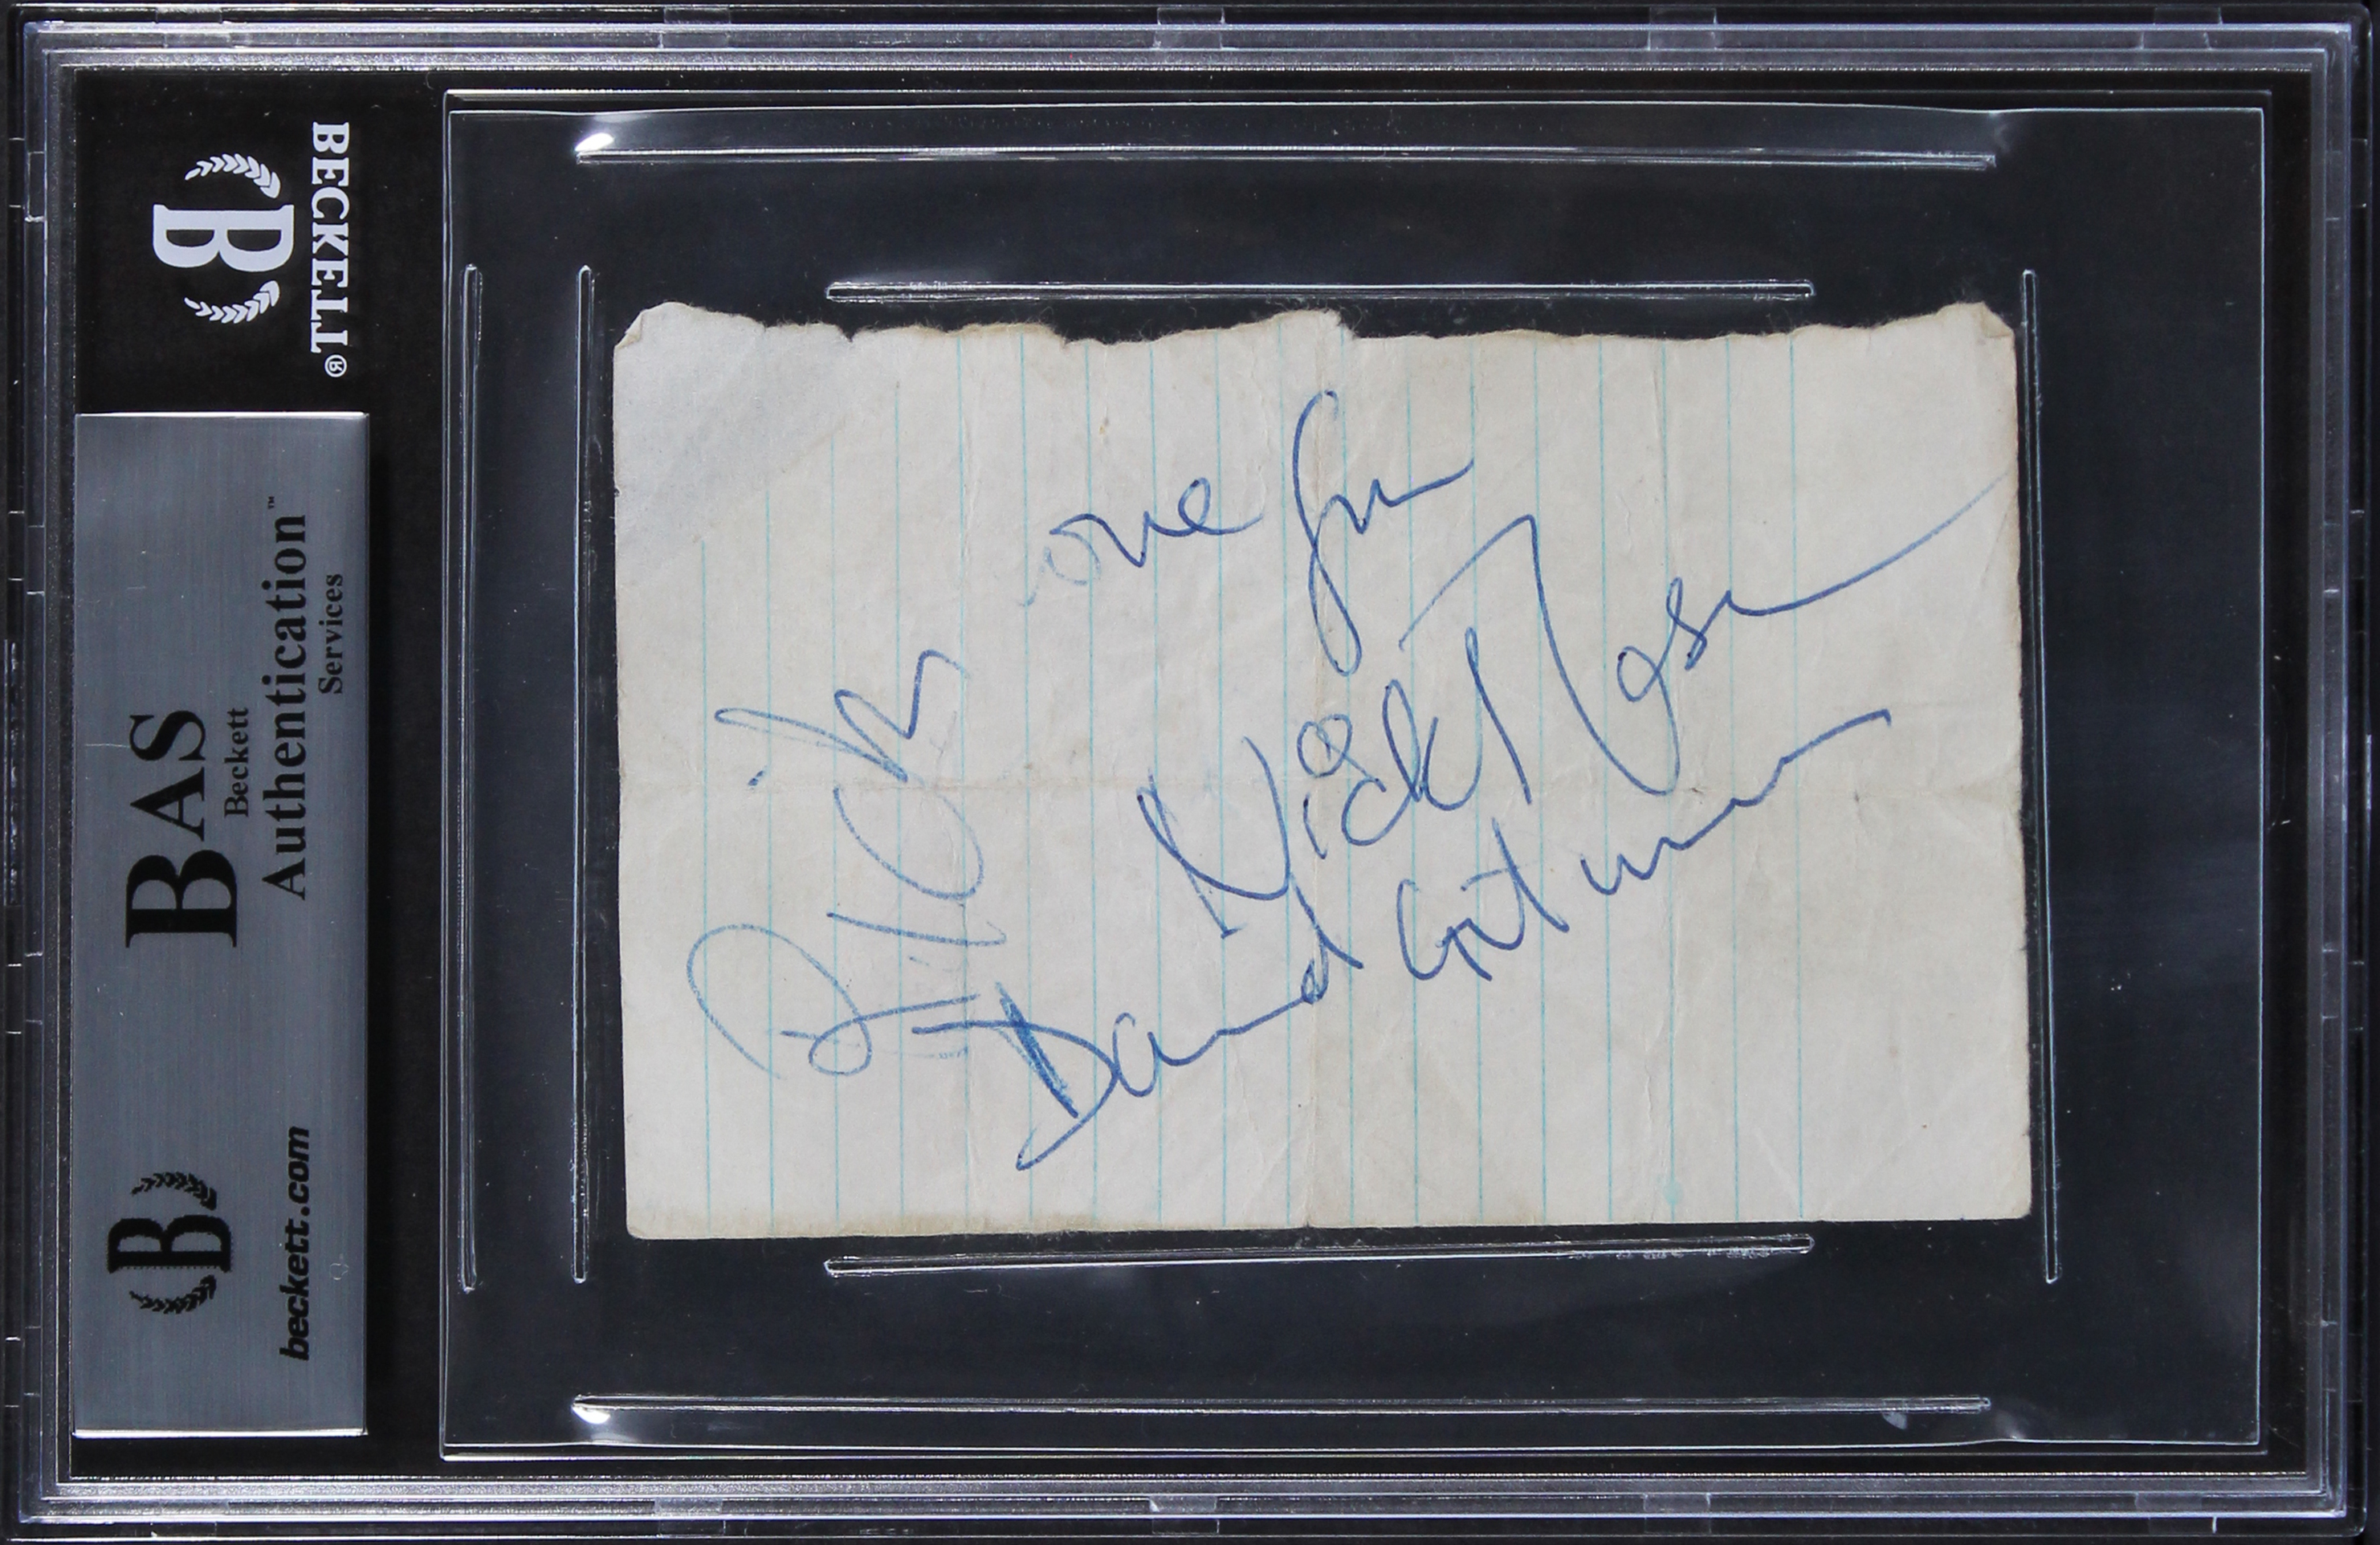 BECKETT®
B
BAS
Beckett
Authentication™
Services
B
beckett.com
one
Nick Mason
David Gilmour